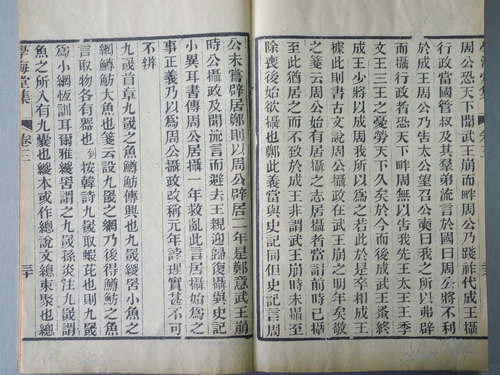 周公恐天下聞武王崩而畔周公乃踐祚代成王攝
行政當國管叔及其羣弟流言於國曰周公將不利
於成王周公乃告太公望召公奭曰我之所以弗辟
而攝行政者恐天下畔周無以告我先王太王王季
文王三王之憂勞天下久矣於今而後成武王蚤終
成王少將以成周我所以為之若此於是卒相成王
據此則書古文說周公攝政在武王崩之明年矣敬
之箋云周公居攝之志居攝者當謂前時已攝
至此猶居之而不致於成王非謂武王崩時未攝至
除喪後始欲攝也鄭此義當與史記同但史記言周
公未嘗辟居鄭則以周公辟居二年是鄭意武王崩
時公攝政及聞流言而避去王親迎復攝與史記
小異耳書傳周公居攝一年救亂此言居攝始為之
事正義乃以為周公攝政改稱元年誖理實甚不可
不辨
九罭首章九罭之魚鱒魴傳興也九罭緵罟小魚之
網鱒魴大魚也箋云設九罭之網乃後得鱒魴之魚
言取物各有器也按韓詩九罭取蝦芘也則九罭
為小網恆訓耳爾雅緵罟謂之九罭孫炎注九罭謂
魚之所入有九囊也緵本或作總說文總束聚也
學海堂集 卷三